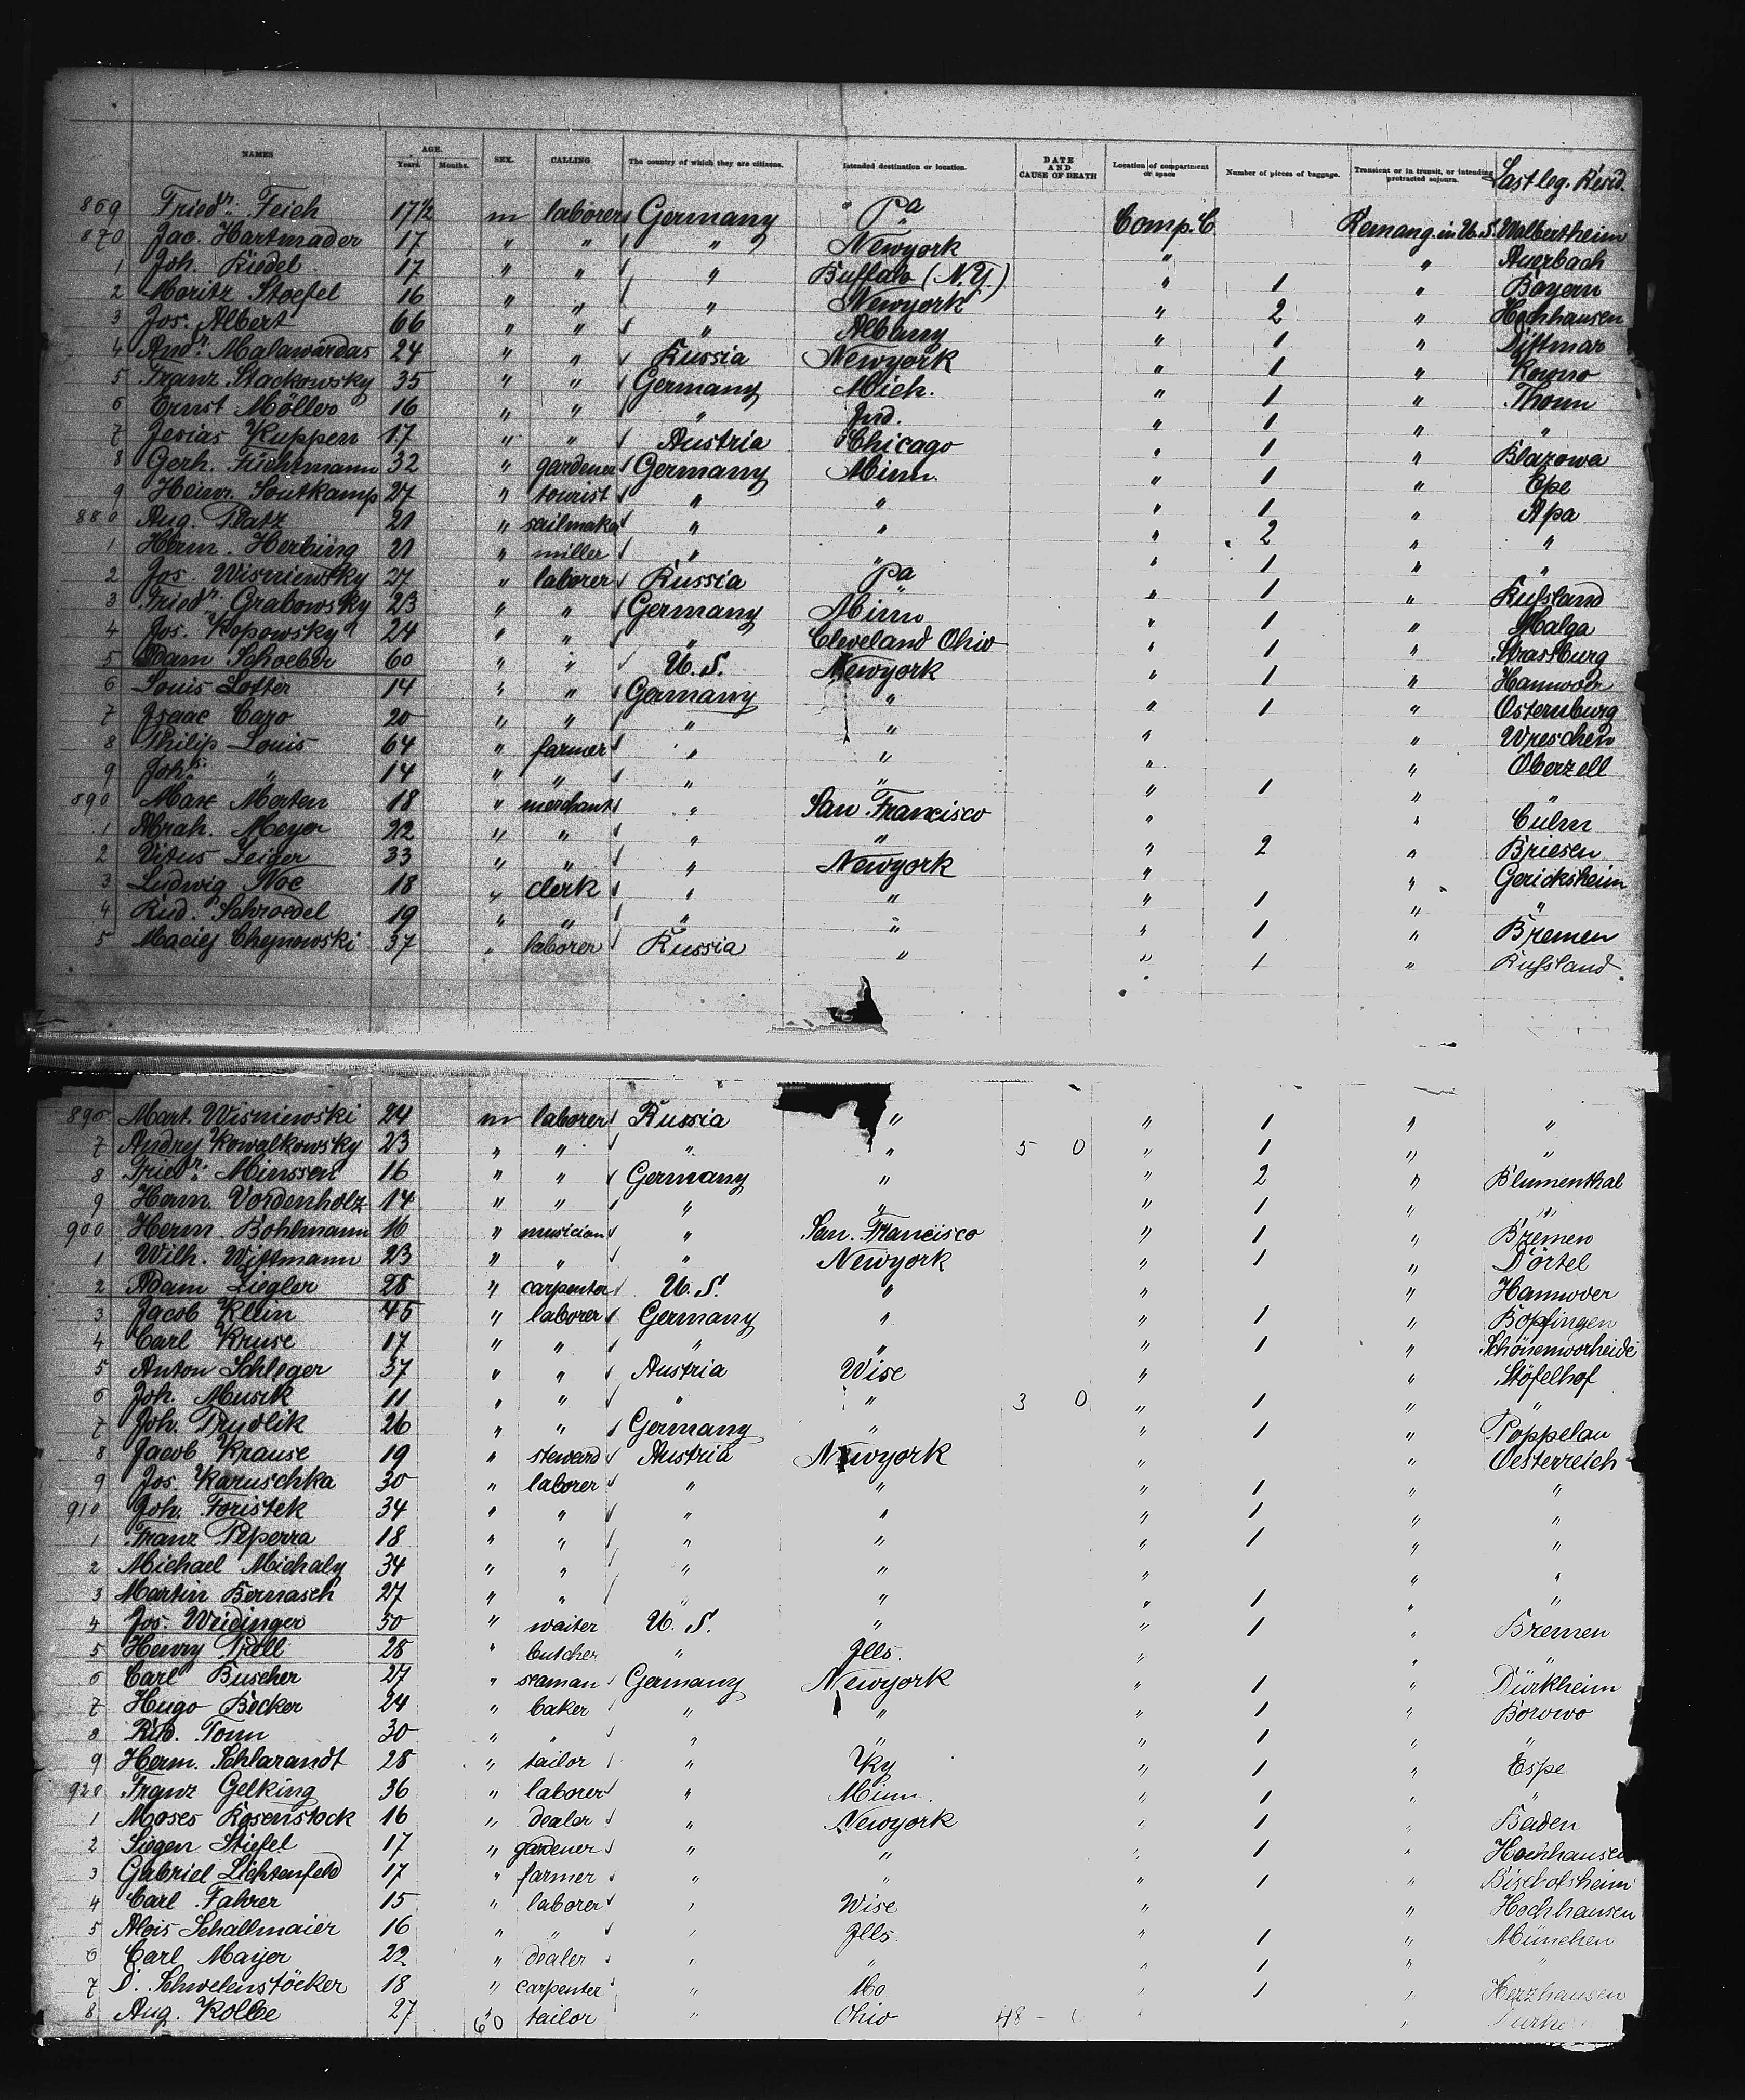 NAMES AGE. Years. Months. SEX. CALLING The country of which they are citizens. Intended destination or location. DATE AND CAUSE OF DEATH Location of compartment or space Number of pieces of baggage. Transient or in transit, or intending protracted sojourn. Last leg. Resid.
869 Friedr. Feich 17½ m laborer Germany Pa Comp. C Remang. in U.S. Walbertheim
870 Jac. Hartmader 17 " " " Newyork " " Auerbach
1 Joh. Riedel 17 " " " Buffalo (N.Y.) " 1 " Bayern
2 Moritz Stoefel 16 " " " Newyork " 2 " Hochhausen
3 Jos. Albert 66 " " " Albany " 1 " Dittmar
4 Andr. Malawardas 24 " " Russia Newyork " 1 " Kowno
5 Franz Stackowsky 35 " " Germany Mich. " 1 " Thorn
6 Ernst Möller 16 " " " Ind. " 1 " "
7 Jesias Kuppen 17 " " Austria Chicago " 1 " Blazowa
8 Gerh. Füchtmann 32 " gardener Germany Minn. " 1 " Epe
9 Heinr. Soutkamp 27 " tourist " " " 1 " Apa
880 Aug. Platz 21 " sailmaker " " " 2 " "
1 Herm. Herbing 21 " miller " " " 1 " "
2 Jos. Wisniewsky 27 " laborer Russia Pa " 1 " Rußland
3 Friedr. Grabowsky 23 " " Germany Minn " 1 " Malga
4 Jos. Kopowsky 24 " " " Cleveland Ohio " 1 " Strassburg
5 Adam Schoeber 60 " " U.S. Newyork " 1 " Hannover
6 Louis Lotter 14 " " Germany " " 1 " Osternburg
7 Isaac Caro 20 " " " " " " Wreschen
8 Philip Louis 64 " farmer " " " " Oberzell
9 Joh.s " 14 " " " " " 1 " "
890 Max Merten 18 " merchant " San Francisco " " Culm
1 Abrah. Meyer 22 " " " " " 2 " Briesen
2 Vitus Zeiger 33 " " " Newyork " " Gericksheim
3 Ludwig Noe 18 " clerk " " " 1 " "
4 Rud. Schroedel 19 " " " " " 1 " Bremen
5 Maciej Chejnowski 37 " laborer Russia " " 1 " Rußland
896 Mart. Wisniewski 24 m laborer Russia " " 1 " "
7 Andrej Kowalkowsky 23 " " " " 5 0 " 1 " "
8 Friedr. Minssen 16 " " Germany " " 2 " Blumenthal
9 Herm. Vordenholz 14 " " " " " 1 " "
900 Herm. Bohlmann 16 " musician " San. Francisco " 1 " Bremen
1 Wilh. Wittmann 23 " " " Newyork " 1 " Dörtel
2 Adam Ziegler 28 " carpenter U.S. " " " Hannover
3 Jacob Klein 45 " laborer Germany " " 1 " Bopfingen
4 Carl Kruse 17 " " " " " 1 " Schönenworheide
5 Anton Schleger 37 " " Austria Wisc " " Stöfelhof
6 Joh. Musik 11 " " " " 3 0 " 1 " "
7 Joh. Prydlik 26 " " Germany " " 1 " Poppelau
8 Jacob Krause 19 " steward Austria Newyork " " Oesterreich
9 Jos. Karuschka 30 " laborer " " " 1 " "
910 Joh. Foristek 34 " " " " " 1 " "
1 Franz Peperra 18 " " " " " 1 " "
2 Michael Michaly 34 " " " " " " "
3 Martin Bernasch 27 " " " " " 1 " "
4 Jos. Weidinger 50 " waiter U.S. " " 1 " Bremen
5 Henry Prell 28 " butcher " Ills. " " "
6 Carl Buscher 27 " seaman Germany Newyork " 1 " Dürkheim
7 Hugo Becker 24 " baker " " " 1 " Borowo
8 Rud. Tonn 30 " " " " " 1 " "
9 Herm. Schlarandt 28 " tailor " Ky " 1 " Espe
920 Franz Gelking 36 " laborer " Minn. " 1 " "
1 Moses Rosenstock 16 " dealer " Newyork " 1 " Baden
2 Siegen Stiefel 17 " gardener " " " 1 " Hochhausen
3 Gabriel Lichtenfeld 17 " farmer " " " 1 " Bischofsheim
4 Carl Fahrer 15 " laborer " Wisc " " Hochhausen
5 Alois Schallmaier 16 " " " Ills. " 1 " München
6 Carl Mayer 22 " dealer " " " 1 " "
7 D. Schwelenstöcker 18 " carpenter " Mo. " 1 " Herzhausen
8 Aug. Kolbe 27 60 tailor " Ohio 48 - " "